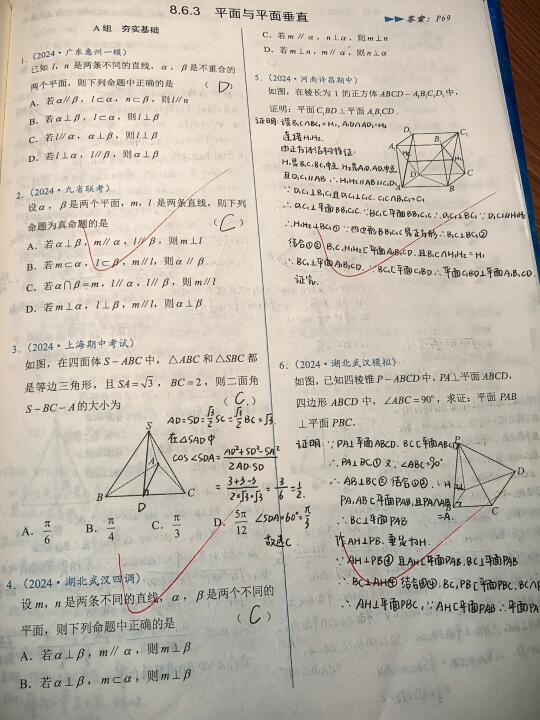 8.6.3 平面与平面垂直
答案：P69
A组 夯实基础
1.（2024·广东惠州一模）
已知 l，n是两条不同的直线，α，β是不重合的
两个平面，则下列命题中正确的是 （ D ）
A. 若α∥β，l⊂α，n⊂β，则l∥n
B. 若α⊥β，l⊂α，则l⊥β
C. 若l∥α，α⊥β，则l⊥β
D. 若l⊥α，l∥β，则α⊥β
2.（2024·九省联考）
设α，β是两个平面，m，l 是两条直线，则下列
命题为真命题的是 （ C ）
A. 若α⊥β，m∥α，l∥β，则m⊥l
B. 若m⊂α，l⊂β，m∥l，则α∥β
C. 若α∩β=m，l∥α，l∥β，则m∥l
D. 若m⊥α，l⊥β，m∥l，则α⊥β
3.（2024·上海期中考试）
如图，在四面体S-ABC中，△ABC和△SBC都
是等边三角形，且SA=√3，BC=2，则二面角
S-BC-A的大小为 （ C. ）
AD=SD=√3/2 SC=√3/2 BC=√3
在△SAD中
cos∠SDA=(AD²+SD²-SA²)/(2AD·SD)
=(3+3-3)/(2×√3×√3)=3/6=1/2.
∠SDA=60°=π/3
故选C
S
A
B
D
C
A. π/6 B. π/4 C. π/3 D. 5π/12
4.（2024·湖北武汉四调）
设m，n是两条不同的直线，α，β是两个不同的
平面，则下列命题中正确的是 （ C ）
A. 若α⊥β，m∥α，则m⊥β
B. 若α⊥β，m⊂α，则m⊥β
C. 若m∥α，n⊥α，则m⊥n
D. 若m⊥n，m∥α，则n⊥α
5.（2024·河南许昌期中）
如图，在棱长为1的正方体ABCD-A₁B₁C₁D₁中，
证明：平面C₁BD⊥平面A₁B₁CD.
证明：设B₁C∩BC₁=H₁，A₁D∩AD₁=H₂
连接H₁H₂.
由正方体结构特征：
H₁是B₁C，BC₁中点，H₂是A₁D，AD₁中点
且D₁C₁∥AB，∴H₁H₂∥AB∥C₁D₁
∵D₁C₁⊥B₁C₁且D₁C₁⊥C₁C，C₁C∩B₁C₁=C₁
∴D₁C₁⊥平面BB₁C₁C ∵BC₁⊂平面BB₁C₁C ∴D₁C₁⊥BC₁ ∵D₁C₁∥H₁H₂
∴H₁H₂⊥BC₁① ∵四边形BB₁C₁C是正方形 ∴B₁C⊥BC₁②
结合①② B₁C，H₁H₂⊂平面A₁B₁CD，且B₁C∩H₁H₂=H₁
∴BC₁⊥平面A₁B₁CD. ∵BC₁⊂平面C₁BD ∴平面C₁BD⊥平面A₁B₁CD.
证完.
6.（2024·湖北武汉模拟）
如图，已知四棱锥P-ABCD中，PA⊥平面ABCD，
四边形ABCD中，∠ABC=90°，求证：平面PAB
⊥平面PBC.
证明：∵PA⊥平面ABCD. BC⊂平面ABCD
∴PA⊥BC① 又∵∠ABC=90°
∴AB⊥BC② 结合①②.
PA，AB⊂平面PAB，且PA∩AB
=A.
∴BC⊥平面PAB
作AH⊥PB. 垂足为H.
∴AH⊥PB③ 且AH⊂平面PAB，BC⊥平面PAB
∴BC⊥AH④ 结合③④. BC，PB⊂平面PBC. BC∩
∴AH⊥平面PBC，∵AH⊂平面PAB ∴平面PA